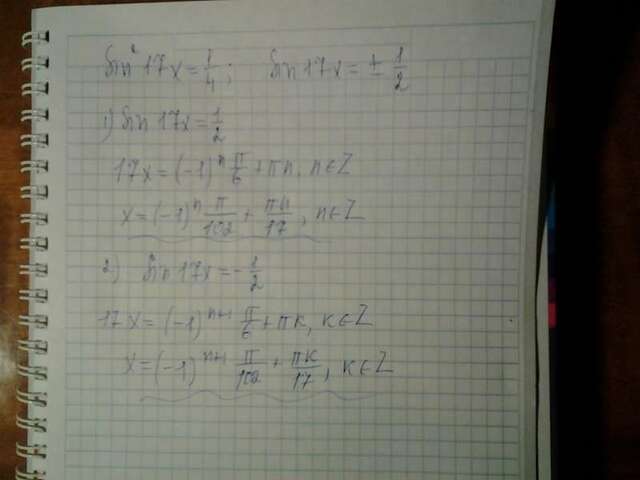 sin² 17x = 1/4; sin 17x = ± 1/2
1) sin 17x = 1/2
17x = (-1)ⁿ π/6 + πn, n∈Z
x = (-1)ⁿ π/102 + πn/17, n∈Z
2) sin 17x = - 1/2
17x = (-1)ⁿ⁺¹ π/6 + πk, k∈Z
x = (-1)ⁿ⁺¹ π/102 + πk/17, k∈Z